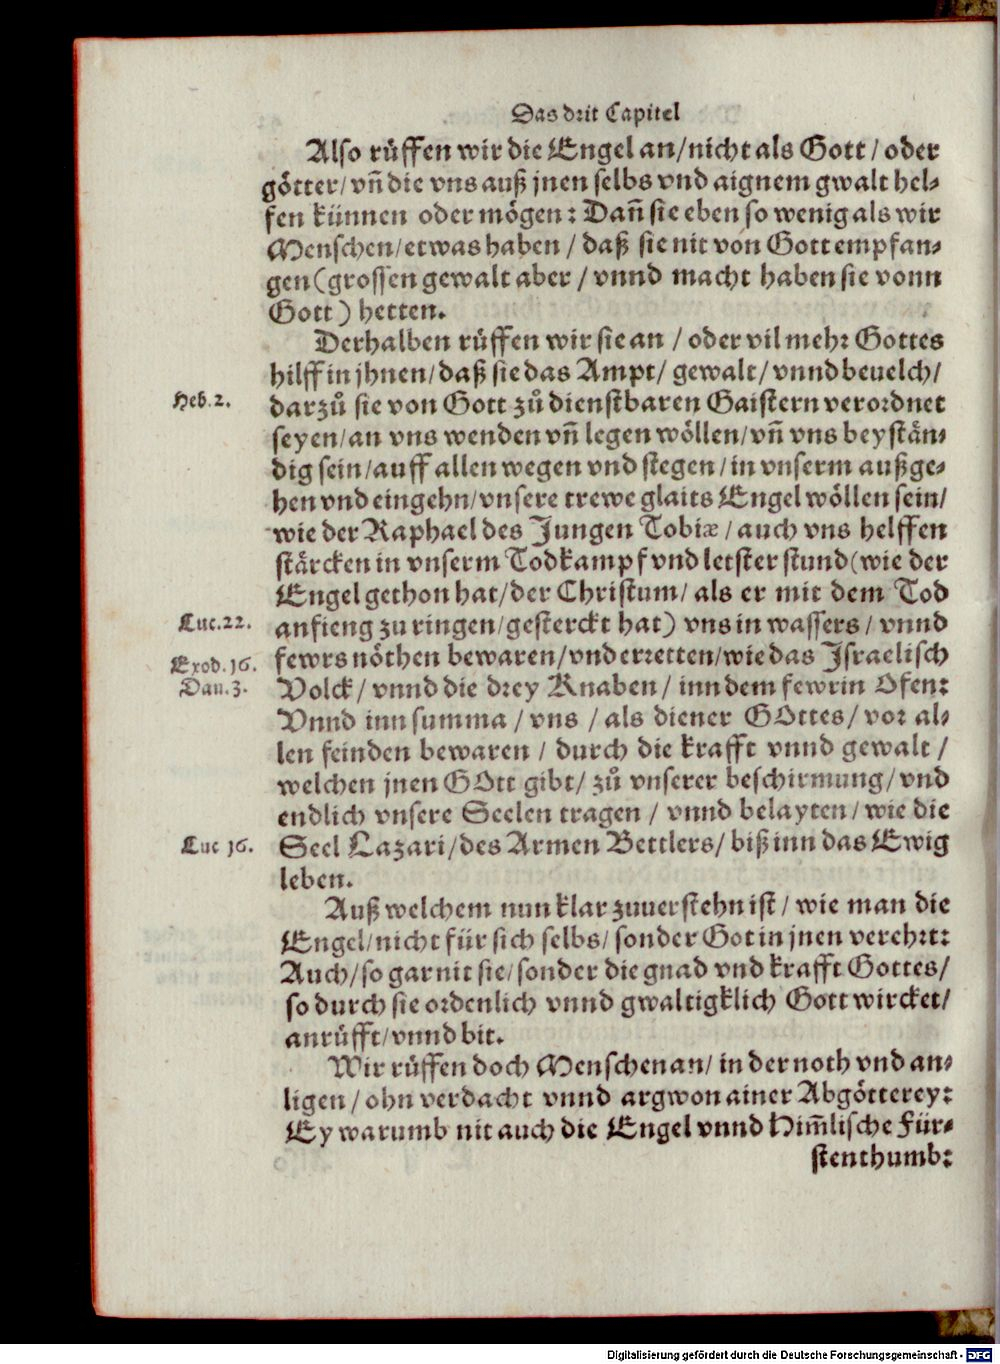 Das drit Capitel
Also růffen wir die Engel an/nicht als Gott/ oder
götter/ vñ die vns auß jnen selbs vnd aignem gwalt hel-
fen künnen oder mögen: Dañ sie eben so wenig als wir
Menschen/etwas haben/ daß sie nit von Gott empfan-
gen (grossen gewalt aber/ vnnd macht haben sie vonn
Gott) hetten.
Derhalben růffen wir sie an/ oder vil mehr Gottes
hilff in jhnen/ daß sie das Ampt/ gewalt/ vnnd beuelch/
Heb. 2.
darzů sie von Gott zů dienstbaren Gaistern verordnet
seyen/an vns wenden vñ legen wöllen/ vñ vns beystän-
dig sein/auff allen wegen vnd stegen/in vnserm außge-
hen vnd eingehn/vnsere trewe glaits Engel wöllen sein/
wie der Raphael des Jungen Tobiæ/ auch vns helffen
stärcken in vnserm Todkampf vnd letster stund (wie der
Engel gethon hat/der Christum/ als er mit dem Tod
Luc. 22.
anfieng zu ringen/gesterckt hat) vns in wassers/ vnnd
Exod. 16.
fewrs nöthen bewaren/vnd erretten/wie das Israelisch
Dan. 3.
Volck/ vnnd die drey Knaben/ inn dem fewrin Ofen:
Vnnd inn summa/ vns/ als diener GOttes/ vor al-
len feinden bewaren/ durch die krafft vnnd gewalt/
welchen jnen GOtt gibt/ zů vnserer beschirmung/ vnd
endlich vnsere Seelen tragen/ vnnd belayten/ wie die
Luc 16.
Seel Lazari/des Armen Bettlers/ biß inn das Ewig
leben.
Auß welchem nun klar zuuerstehn ist/ wie man die
Engel/nicht für sich selbs/ sonder Got in jnen verehrt:
Auch/so gar nit sie/sonder die gnad vnd krafft Gottes/
so durch sie ordenlich vnnd gwaltigklich Gott wircket/
anrůfft/vnnd bit.
Wir růffen doch Menschen an/ in der noth vnd an-
ligen/ ohn verdacht vnnd argwon ainer Abgötterey:
Ey warumb nit auch die Engel vnnd Him̃lische Für-
stenthumb:
Digitalisierung gefördert durch die Deutsche Forschungsgemeinschaft - DFG